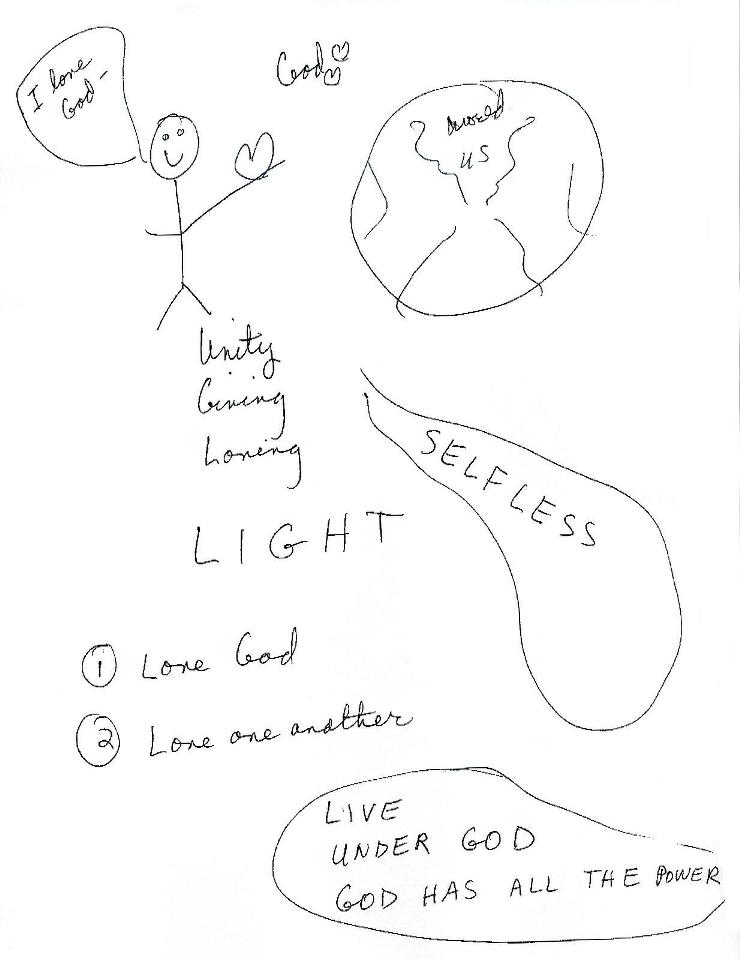 I love
God-
God
world
US
Unity
Giving
Loving
SELFLESS
LIGHT
1 Love God
2 Love one another
LIVE
UNDER GOD
GOD HAS ALL THE POWER